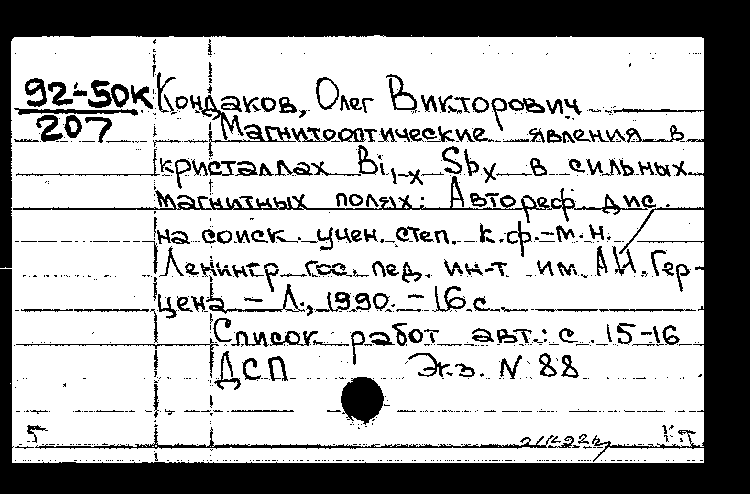 92-50К Кондаков, Олег Викторович
207
Магнитооптические явления в
кристаллах Bi₁₋ₓ Sbₓ в сильных
магнитных полях: Автореф. дис.
на соиск. учен. степ. к.ф.-м.н.
Ленингр. гос. пед. ин-т им. А.И. Гер-
цена – Л., 1990. – 16 с.
Список работ авт.: с. 15-16
ДСП Экз. N 88
5 КП